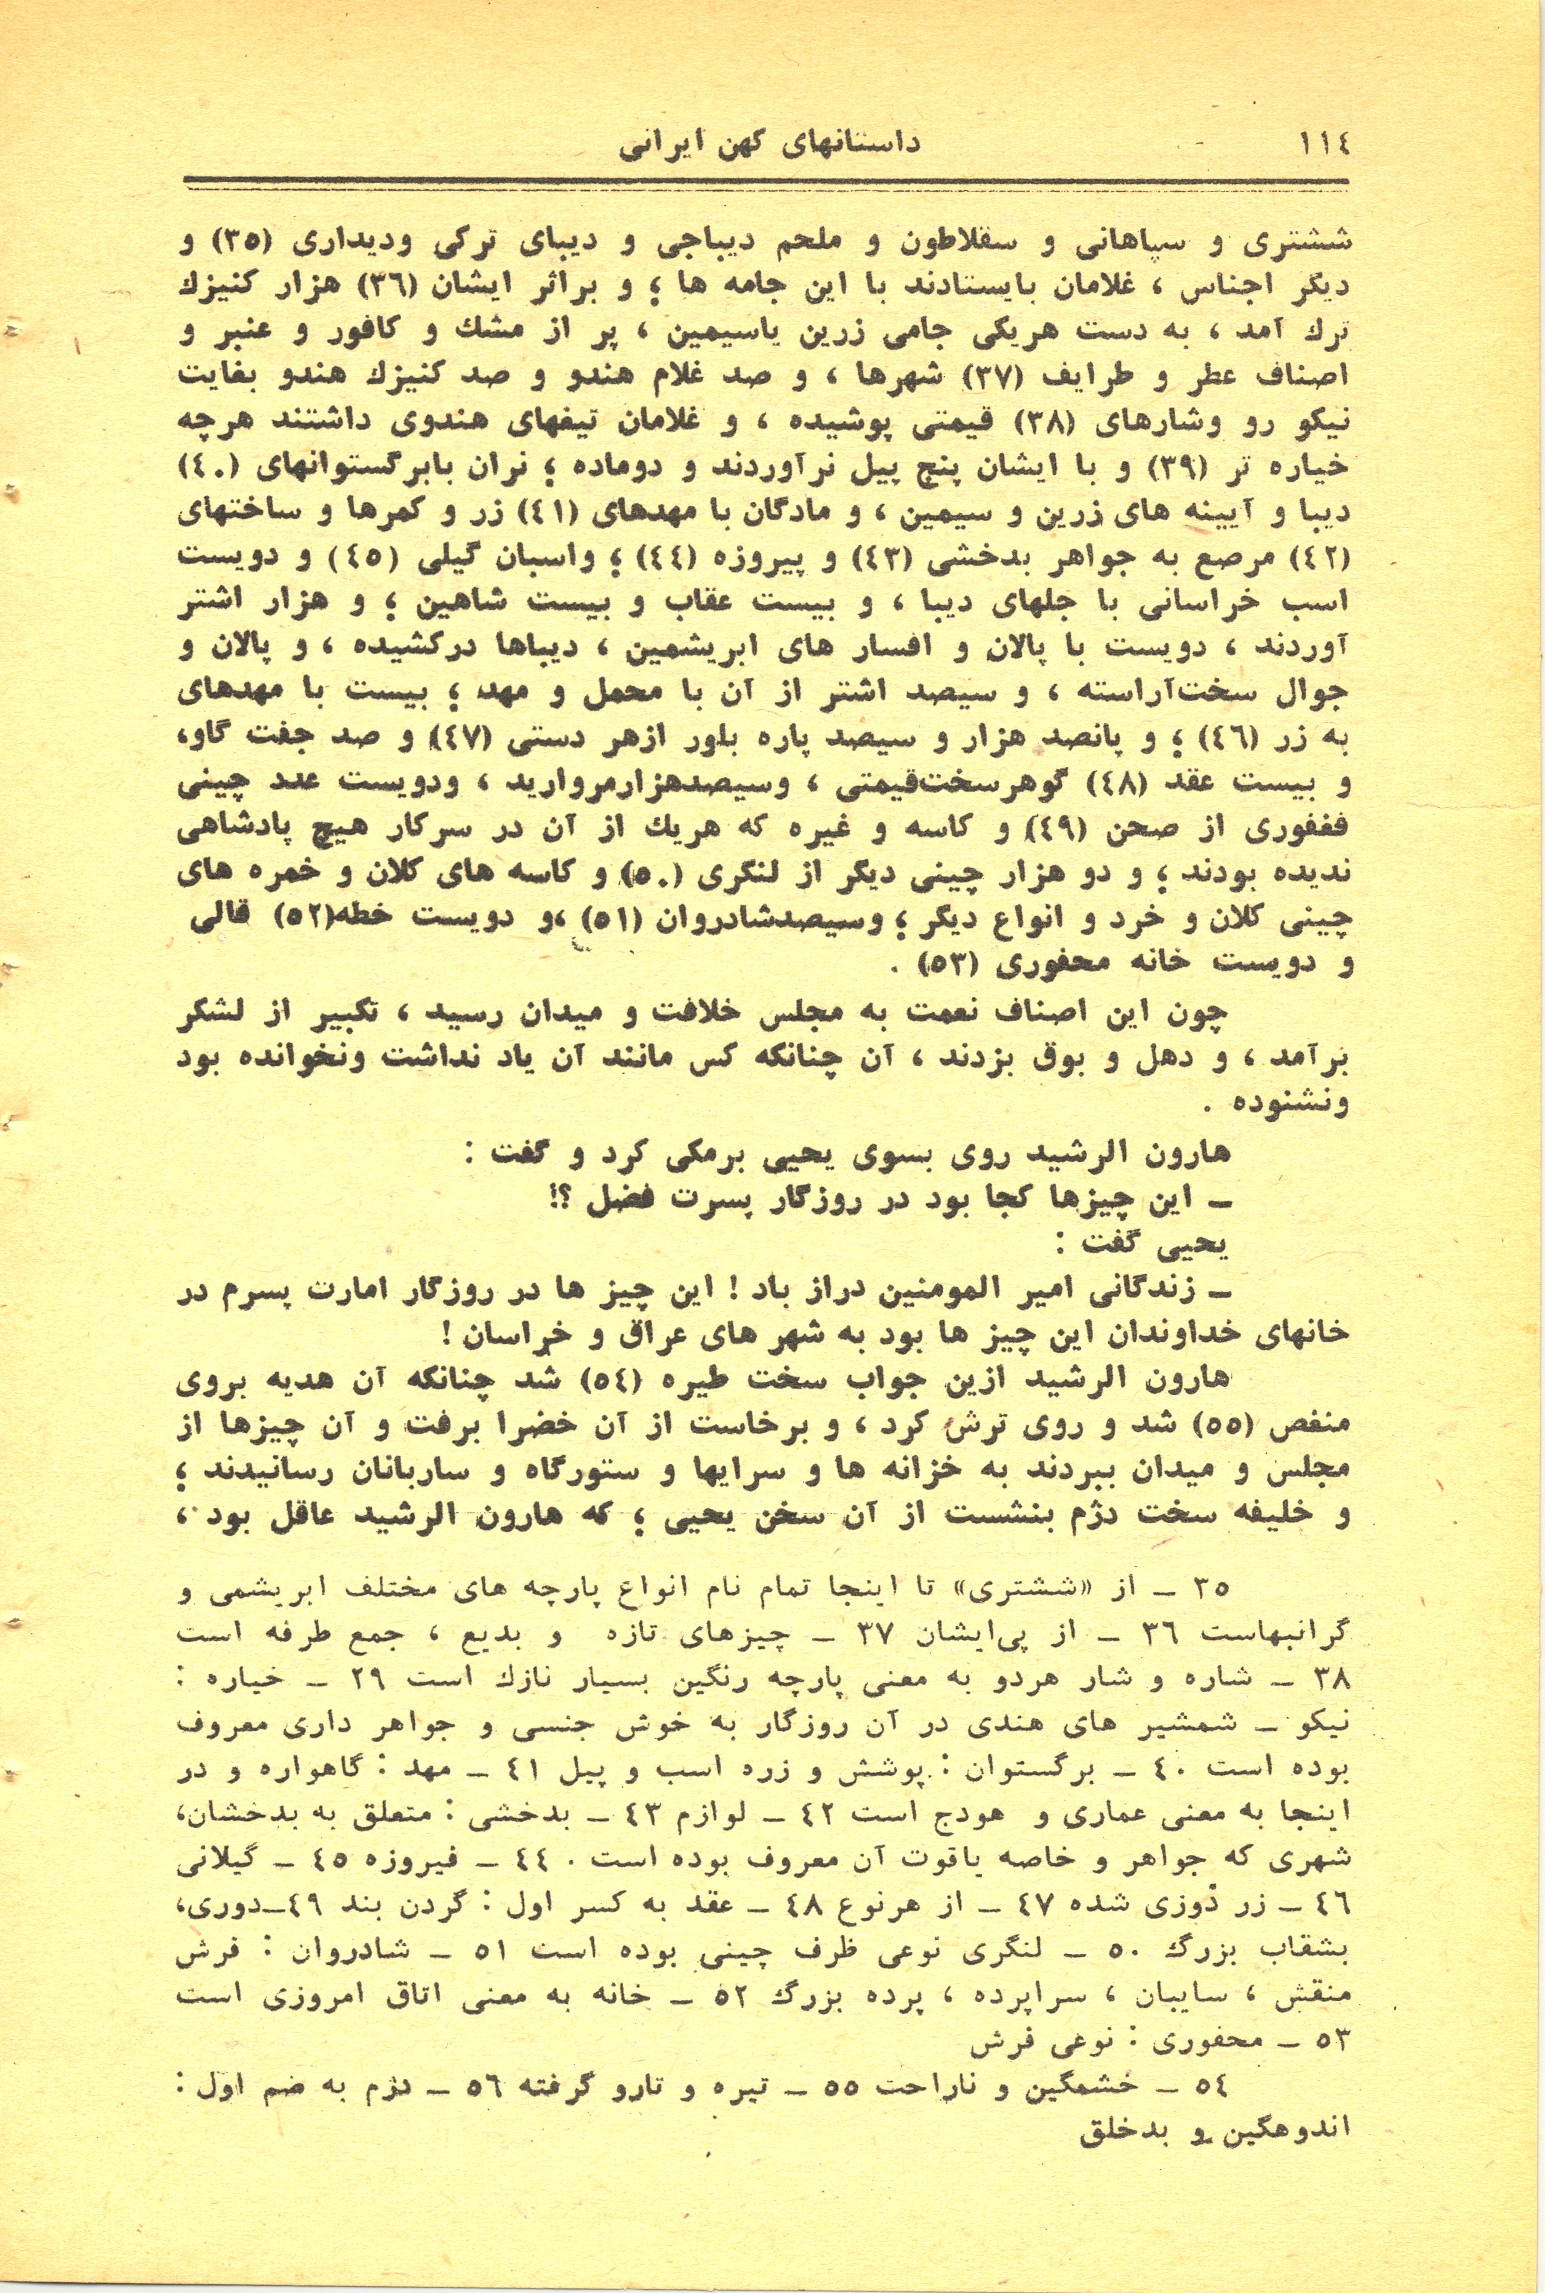 ١١٤
داستانهای کهن ایرانی
ششتری و سپاهانی و سقلاطون و ملحم دیباجی و دیبای ترکی ودیداری (٣٥) و
دیگر اجناس ، غلامان بایستادند با این جامه ها ؛ و براثر ایشان (٣٦) هزار کنیزك
ترك آمد ، به دست هریکی جامی زرین یاسیمین ، پر از مشك و کافور و عنبر و
اصناف عطر و طرایف (٣٧) شهرها ، و صد غلام هندو و صد کنیزك هندو بغایت
نیکو رو وشارهای (٣٨) قیمتی پوشیده ، و غلامان تیغهای هندوی داشتند هرچه
خیاره تر (٣٩) و با ایشان پنج پیل نرآوردند و دوماده ؛ نران بابرگستوانهای (٤٠)
دیبا و آیینه های زرین و سیمین ، و مادگان با مهدهای (٤١) زر و کمرها و ساختهای
(٤٢) مرصع به جواهر بدخشی (٤٣) و پیروزه (٤٤) ؛ واسبان گیلی (٤٥) و دویست
اسب خراسانی با جلهای دیبا ، و بیست عقاب و بیست شاهین ؛ و هزار اشتر
آوردند ، دویست با پالان و افسار های ابریشمین ، دیباها درکشیده ، و پالان و
جوال سخت‌آراسته ، و سیصد اشتر از آن با محمل و مهد ؛ بیست با مهدهای
به زر (٤٦) ؛ و پانصد هزار و سیصد پاره بلور ازهر دستی (٤٧) و صد جفت گاو،
و بیست عقد (٤٨) گوهرسخت‌قیمتی ، وسیصدهزارمروارید ، ودویست عدد چینی
فغفوری از صحن (٤٩) و کاسه و غیره که هریك از آن در سرکار هیچ پادشاهی
ندیده بودند ؛ و دو هزار چینی دیگر از لنگری (٥٠) و کاسه های کلان و خمره های
چینی کلان و خرد و انواع دیگر ؛ وسیصدشادروان (٥١) ،و دویست خطه(٥٢) قالی
و دویست خانه محفوری (٥٣) .
چون این اصناف نعمت به مجلس خلافت و میدان رسید ، تکبیر از لشکر
برآمد ، و دهل و بوق بزدند ، آن چنانکه کس مانند آن یاد نداشت ونخوانده بود
ونشنوده .
هارون الرشید روی بسوی یحیی برمکی کرد و گفت :
ــ این چیزها کجا بود در روزگار پسرت فضل ؟!
یحیی گفت :
ــ زندگانی امیر المومنین دراز باد ! این چیز ها در روزگار امارت پسرم در
خانهای خداوندان این چیز ها بود به شهر های عراق و خراسان !
هارون الرشید ازین جواب سخت طیره (٥٤) شد چنانکه آن هدیه بروی
منغص (٥٥) شد و روی ترش کرد ، و برخاست از آن خضرا برفت و آن چیزها از
مجلس و میدان ببردند به خزانه ها و سرایها و ستورگاه و ساربانان رسانیدند ؛
و خلیفه سخت دژم بنشست از آن سخن یحیی ؛ که هارون الرشید عاقل بود ،
٣٥ ــ از «ششتری» تا اینجا تمام نام انواع پارچه های مختلف ابریشمی و
گرانبهاست ٣٦ ــ از پی‌ایشان ٣٧ ــ چیزهای تازه و بدیع ، جمع طرفه است
٣٨ ــ شاره و شار هردو به معنی پارچه رنگین بسیار نازك است ٢٩ ــ خیاره :
نیکو ــ شمشیر های هندی در آن روزگار به خوش جنسی و جواهر داری معروف
بوده است ٤٠ ــ برگستوان : پوشش و زره اسب و پیل ٤١ ــ مهد : گاهواره و در
اینجا به معنی عماری و هودج است ٤٢ ــ لوازم ٤٣ ــ بدخشی : متعلق به بدخشان،
شهری که جواهر و خاصه یاقوت آن معروف بوده است . ٤٤ ــ فیروزه ٤٥ ــ گیلانی
٤٦ ــ زر دوزی شده ٤٧ ــ از هرنوع ٤٨ ــ عقد به کسر اول : گردن بند ٤٩ــدوری،
بشقاب بزرگ ٥٠ ــ لنگری نوعی ظرف چینی بوده است ٥١ ــ شادروان : فرش
منقش ، سایبان ، سراپرده ، پرده بزرگ ٥٢ ــ خانه به معنی اتاق امروزی است
٥٣ ــ محفوری : نوعی فرش
٥٤ ــ خشمگین و ناراحت ٥٥ ــ تیره و تارو گرفته ٥٦ ــ دژم به ضم اول :
اندوهگین و بدخلق